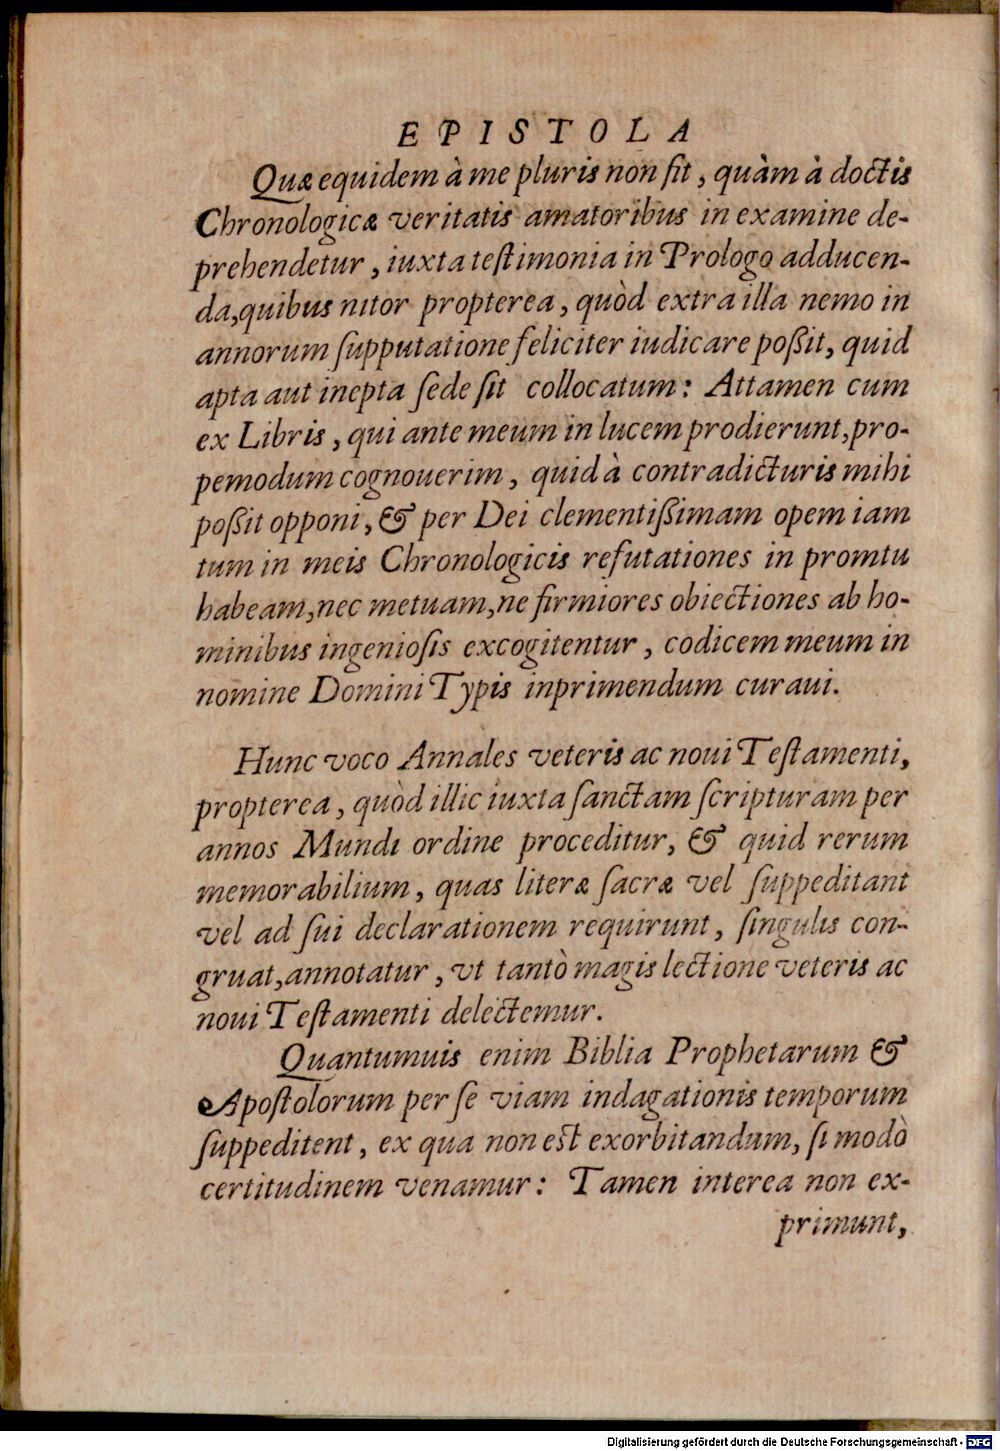 EPISTOLA
Quæ equidem à me pluris non ſit, quàm à doctis
Chronologicæ veritatis amatoribus in examine de-
prehendetur, iuxta teſtimonia in Prologo adducen-
da, quibus nitor propterea, quòd extra illa nemo in
annorum ſupputatione feliciter iudicare poßit, quid
apta aut inepta ſede ſit collocatum: Attamen cum
ex Libris, qui ante meum in lucem prodierunt, pro-
pemodum cognouerim, quid à contradicturis mihi
poßit opponi, & per Dei clementißimam opem iam
tum in meis Chronologicis refutationes in promtu
habeam, nec metuam, ne firmiores obiectiones ab ho-
minibus ingenioſis excogitentur, codicem meum in
nomine Domini Typis inprimendum curaui.
Hunc voco Annales veteris ac noui Teſtamenti,
propterea, quòd illic iuxta ſanctam ſcripturam per
annos Mundi ordine proceditur, & quid rerum
memorabilium, quas literæ ſacræ vel ſuppeditant
vel ad ſui declarationem requirunt, ſingulis con-
gruat, annotatur, vt tantò magis lectione veteris ac
noui Teſtamenti delectemur.
Quantumuis enim Biblia Prophetarum &
Apoſtolorum per ſe viam indagationis temporum
ſuppeditent, ex qua non est exorbitandum, ſi modò
certitudinem venamur: Tamen interea non ex-
primunt,
Digitalisierung gefördert durch die Deutsche Forschungsgemeinschaft - DFG